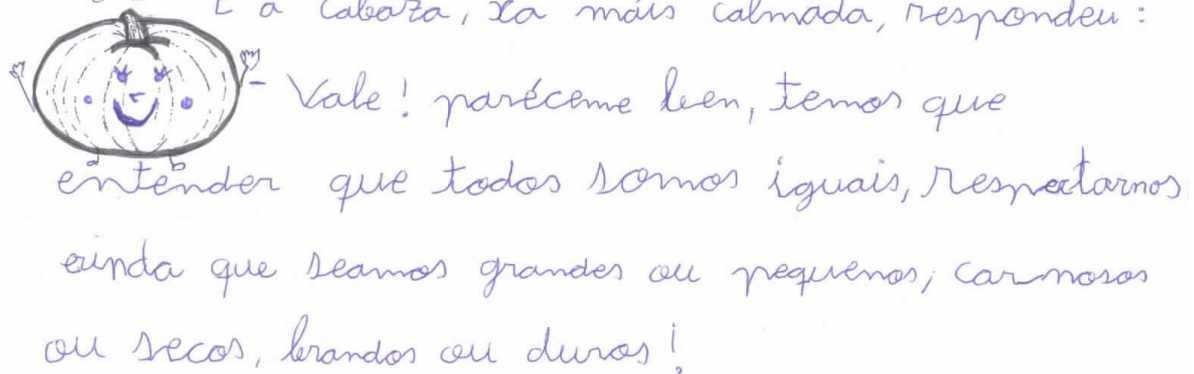 E a Cabaza, xa máis calmada, respondeu:
- Vale! paréceme ben, temos que
entender que todos somos iguais, respectarnos
ainda que seamos grandes ou pequenos, carnosos
ou secos, brandos ou duros!